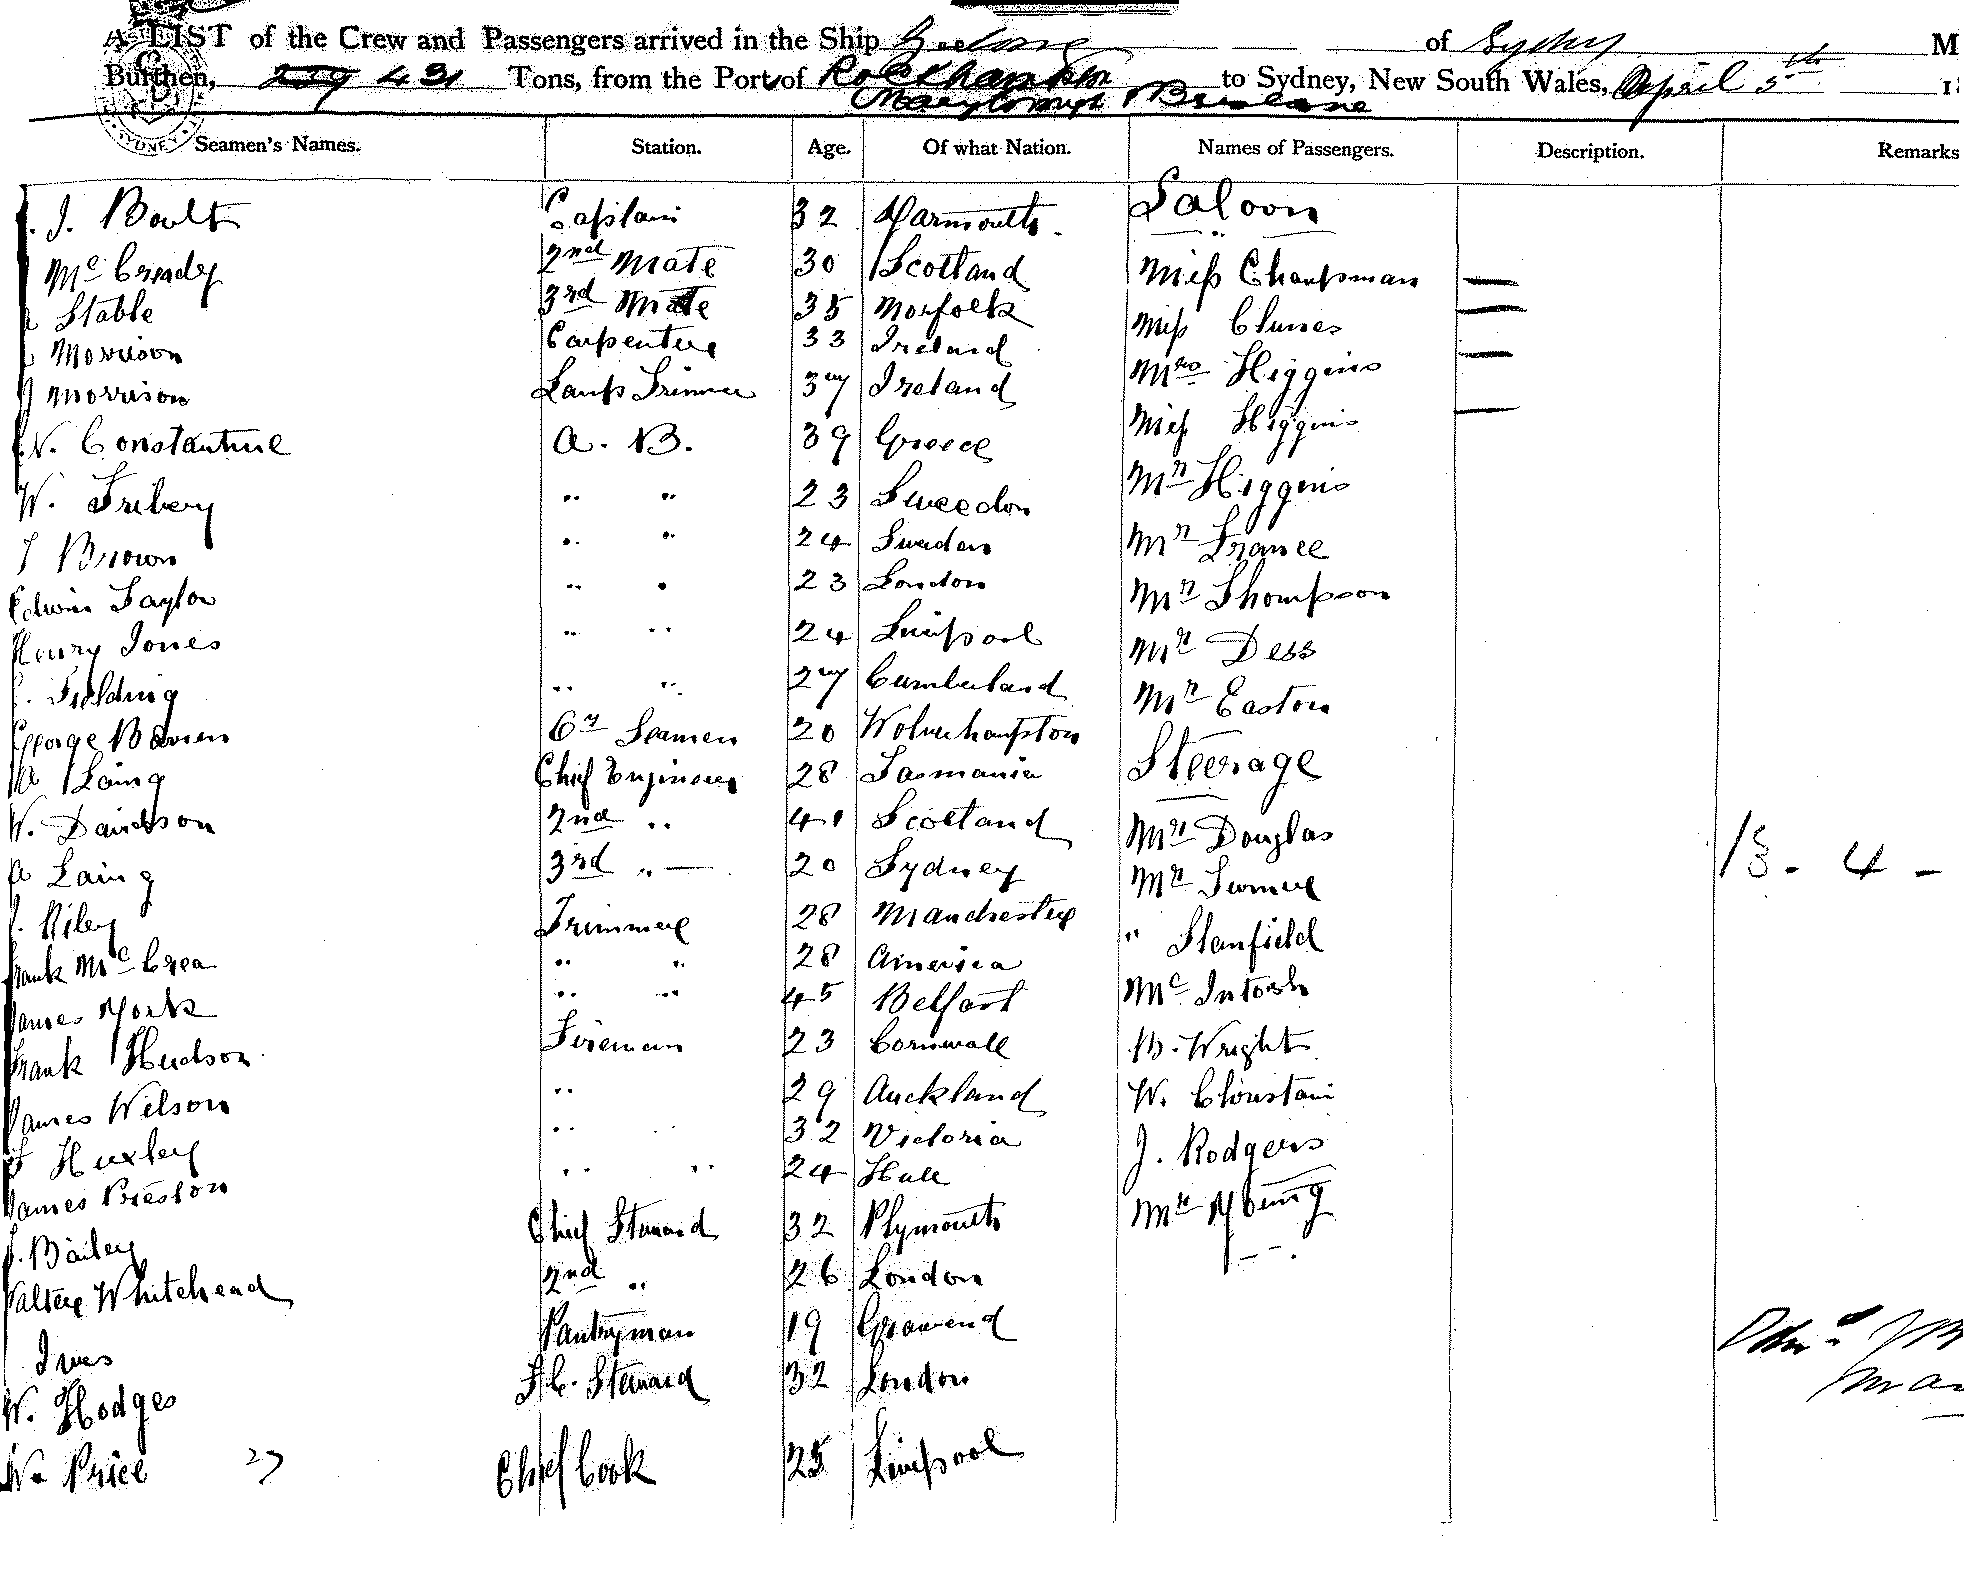 A LIST of the Crew and Passengers arrived in the Ship Geelong of Sydney M
Burthen, 431 Tons, from the Port of Rockhampton to Sydney, New South Wales, April 5th
Maryborough & Brisbane
Seamen's Names. Station. Age. Of what Nation. Names of Passengers. Description. Remarks
J. Boult Captain 32 Yarmouth. Saloon
McCready 2nd Mate 30 Scotland Miss Chapman —
Stable 3rd Mate 35 Norfolk Miss Clunes —
Morrison Carpenter 33 Ireland Mrs Higgins —
J Morrison Lamp Trimmer 37 Ireland Miss Higgins —
N. Constantine A. B. 39 Greece Mr Higgins
W. Fribery " " 23 Sweedon Mr France
J Brown " " 24 Sweden Mr Thompson
Edwin Taylor " " 23 London Mr Dess
Henry Jones " " 24 Liverpool Mr Easton
Fielding " " 27 Cumberland
George Bowen Oy Seamen 20 Wolverhampton Steerage
A Laing Chief Engineer 28 Tasmania Mr Douglas
W. Davidson 2nd " 41 Scotland Mr Turner
A Laing 3rd " — 20 Sydney " Stanfield 13 - 4 -
J. Riley Trimmer 28 Manchester McIntosh
Frank McCrea " " 28 America M. Wright
James York " " 45 Belfast W. Cloustain
Frank Hudson Fireman 23 Cornwall J. Rodgers
James Wilson " 29 Auckland Mr Young
F Huxley " 32 Victoria
James Preston " " 24 Hull
J. Bailey Chief Steward 32 Plymouth
Walter Whitehead 2nd " 26 London
Ives Pantryman 19 Gravesend
W. Hodges F. C. Steward 32 London
Wm Price 27 Chief Cook 25 Liverpool